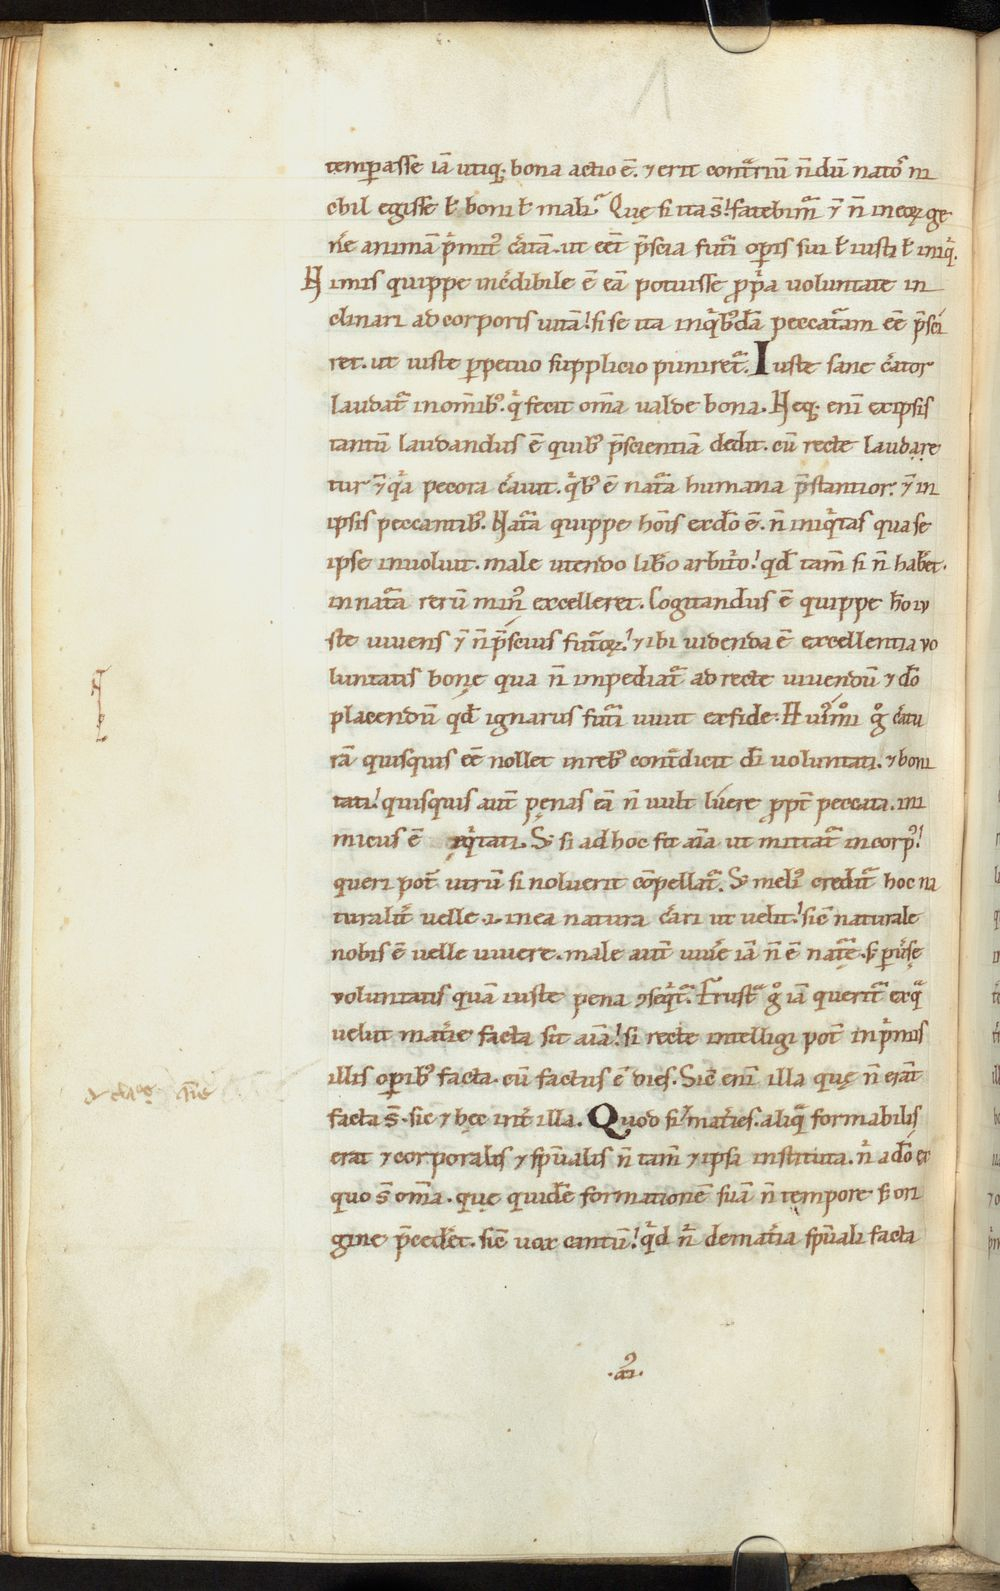 temp̄asse iā utiq;. bona actio ē. ⁊ erit cont̄riū n̄dū nato᷒ ni
chil egisse ł boni ł mali. Quę si ita s̄. fatebim̃ ⁊ n̄ in eoꝝ ge
nere animā p̄mit᷒ c̄atā. ut eēt p̄scia fut̄i op̄is sui ł iusti ł iniq̇.
Nimis quippe inc̄dibile ē eā potuisse p̄pa uoluntate in
clinari ad corporis uitā. si se ita inq̇b᷒dā peccat̄am ēē p̄sci
ret. ut iuste p̄petuo supplicio puniret̃. Iuste sane c̄ator
laudat̃ in om̄ib᷒. q̇ fecit om̄a ualde bona. Neq;. eni ex ipsis
tantū laudandus ē quib᷒ p̄scientiā dedit. cū recte laudare
tur ⁊ q̇a pecora c̄auit. q̇b᷒ ē nat̄a humana p̄stantior. ⁊ in
ipsis peccantib᷒. Nat̄a quippe hōis ex dō ē. n̄ iniq̇tas qua se
ipse inuoluit. male utendo lib̄o arbit̄o. qd̄ tam̄ si n̄ hab̄et.
in nat̄a rerū min᷒ excelleret. Cogitandus ē quippe hō iu
ste uiuens ⁊ n̄ p̄scius fut̄oꝝ. ⁊ ibi uidenda ē excellentia uo
luntatis bonę qua n̄ impediat̃ ad recte uiuendū ⁊ dō
placendū qd̄ ignarus fut̄i uiuit ex fide. g̊ c̄atu
rā quisquis ēē nollet in reb᷒ cont̄dicit dī uoluntati. ⁊ boni
tati. quisquis aut̄ penas eā n̄ uult luere p̄pt̄ peccata. ini
micus ē eq̇tati. S; si ad hoc fit aīa ut mittat̃ in corp᷒.
queri pot̄ utrū si noluerit cōpellat̃. S; meli᷒ credit̃ hoc na
turalit̄ uelle .i. in ea natura c̄ari ut uelit. sic̄ naturale
nobis ē uelle uiuere. male aut̄ uiue iā n̄ ē nat̄ę. s; p̄use
uoluntatis quā iuste pena ꝯseq̇t̃. Frust̄ g̊ iā querit̃ ex q̄
uelut mat̄ie facta sit aīa. si recte intelligi pot̄ in ṗmis
illis op̄ib᷒ facta. cū factus ē dies. Sic̄ eni illa quę n̄ erāt
facta s̄. sic ⁊ hęc int̄ illa. Quod si mat̄ies. aliq̄ formabilis
erat ⁊ corporalis ⁊ sp̄ualis n̄ tam̄ ⁊ ipsa instituta. n̄ a dō ex
quo s̄ om̄a. quę quidē formationē suā n̄ tempore s; ori
gine p̄ced̄et. sic̄ uox cantū. qd̄ n̄ de mat̄ia sp̄uali facta